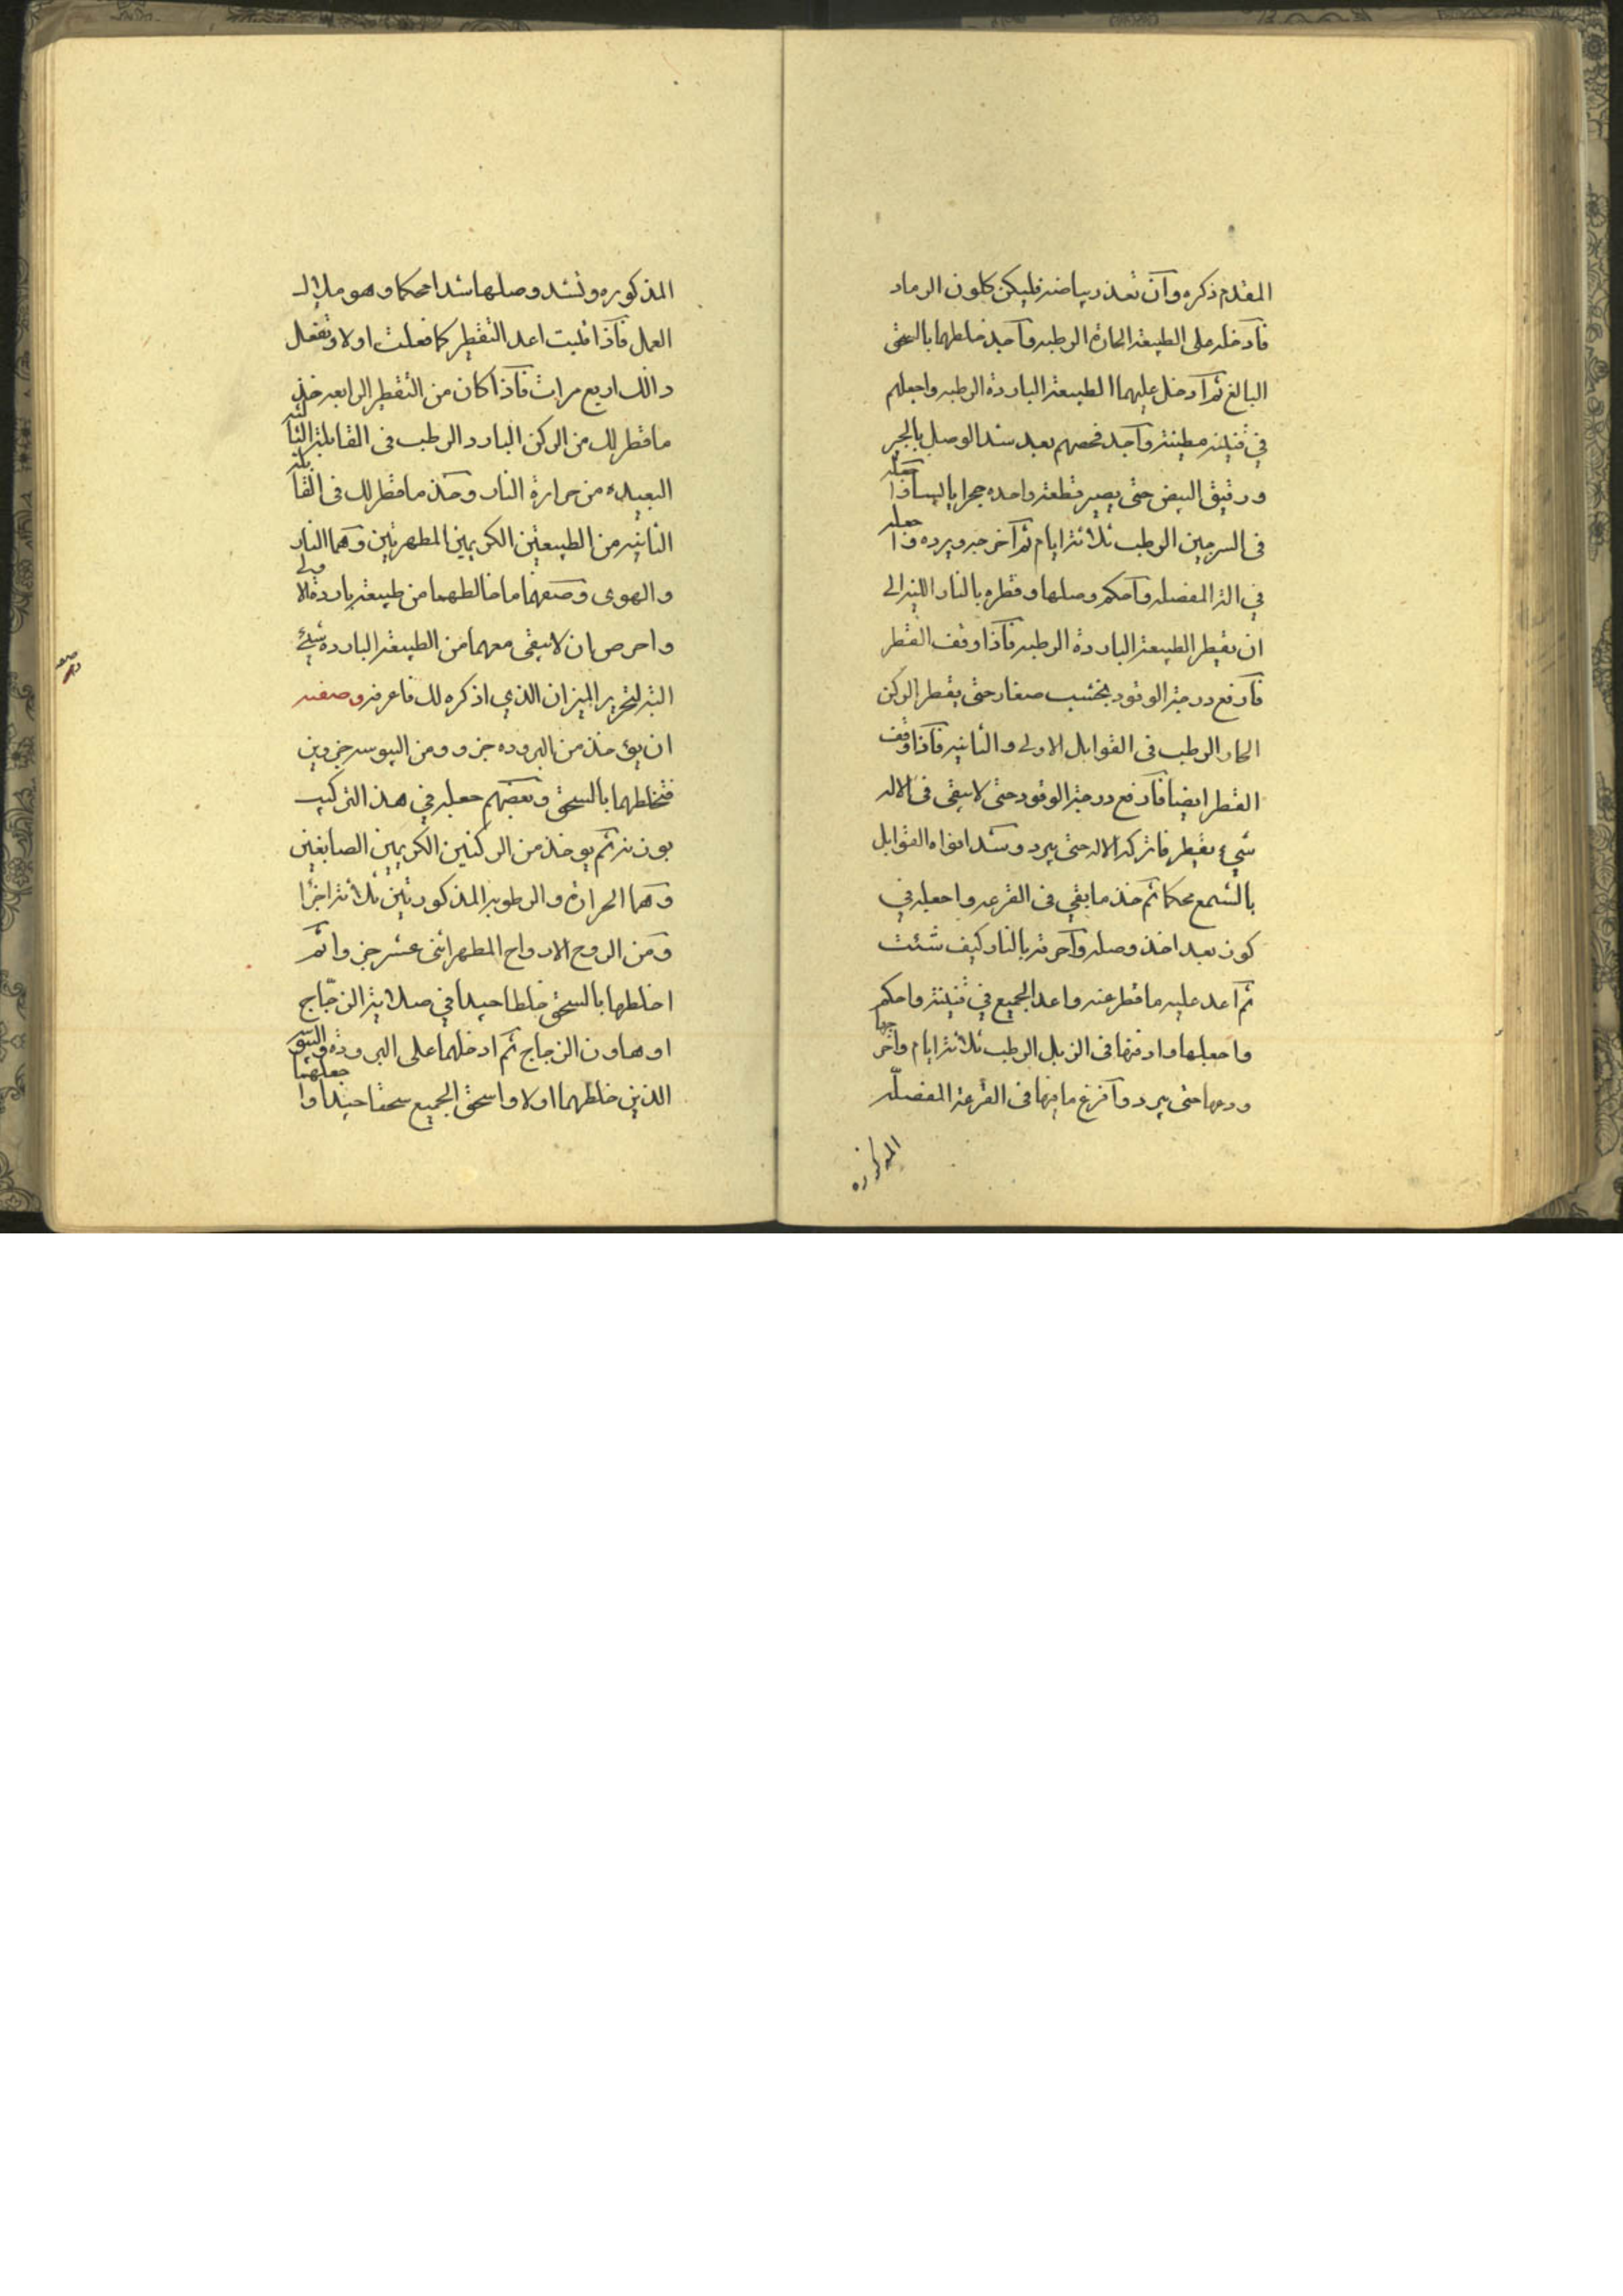 المقدم ذكره وآن تعذر بياضه فليكن كلون الرماد
فآدخله على الطبيعة الحارة الرطبه وآجيد خلطهما بالسحق
البالغ ثم آدخل عليهما الطبيعة الباردة الرطبه واجعلهم
في قنينه مطينة وآجد فحصهم بعد شد الوصل بالجير
ورقيق البيض حتى يصير قطعة واحده حجرا يابسا وآجعله
فى السرجين الرطب ثلاثة ايام ثم آخرجه وبرده وآجعله
في الة المفصله وآحكم وصلها وقطره بالنار اللينه الى
ان يقطر الطبيعة الباردة الرطبه فآذا وقف القطر
فآرفع درجة الوقود بخشب صغار حتى يقطر الركن
الحار الرطب فى القوابل الاولى والثانيه فآذا وقف
القطر ايضا فآرفع درجة الوقود حتى لا يبقى فى الاله
شيء يقطر فاترك الاله حتى يبرد وشد افواه القوابل
بالشمع محكما ثم خذ ما بقي فى القرعه واجعله في
كوز بعد اخذ وصله وآحرقه بالنار كيف شئت
ثم آعد عليه ما قطر عنه واعد الجميع في قنينة واحكم
واجعلها وادفنها فى الزبل الرطب ثلاثة ايام واخرجها
ودعها حتى يبرد وآفرغ ما فيها فى القرعة المفصله
المذكوره
المذكوره وتشد وصلها شدا محكما وهو ملاك
العمل فآذا فليت اعد التقطير كما فعلت اولا وتفعل
ذالك اربع مرات فآذا كان من التقطير الرابعه خذ
ما قطر لك من الركن البارد الرطب فى القابلة الثانيه
البعيده من حرارة النار وخذ ما قطر لك فى القابله
الثانيه من الطبيعتين الكريمين المطهرتين وهما النار
والهوى وصفهما ما خالطهما من طبيعة باردة الاولى
واحرص ان لا يبقى معهما من الطبيعة البارده شيء
البته لتحرير الميزان الذي اذكره لك فاعرفه وصفته
ان يؤخذ من البروده جزو ومن اليبوسه جزوين
فتخلطهما بالسحق وبعضهم جعله في هذ التركيب
بوزنه ثم يوخذ من الركنين الكريمين الصابغين
وهما الحرارة والرطوبه المذكورتين ثلاثة اجزا
ومن الروح الارواح المطهر اثنى عشر جزوا ثم
اخلطها بالسحق خلطا جيدا في صلاية الزجاج
او هاون الزجاج ثم ادخلهما على البرودة واليبوسه
الذين خلطهما اولا واسحق الجميع سحقا جيدا واجعلهما